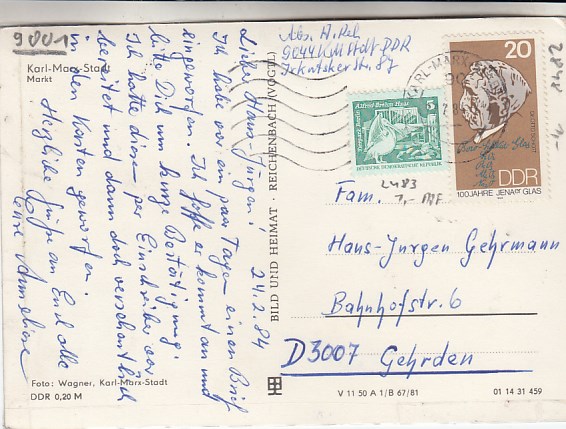 9001
Karl-Marx-Stadt
Markt
24.2.84
Liebe Hans-Jürgen!
Ich habe vor ein paar Tagen einen Brief
eingeworfen. Ich hoffe er kommt an und
bitte Dich um kurze Bestätigung.
Ich hatte diesen per Einschreiben vor
bereitet und dann doch versehentlich
in den Kasten geworfen.
Herzliche Grüße an Euch alle
Eure Anneliese
Foto: Wagner, Karl-Marx-Stadt
DDR 0,20 M
BILD UND HEIMAT · REICHENBACH (VOGTL)
Abs. H. Rel
9044 KMStdt-DDR
Irkutsker Str. 87
Tierpark Berlin Alfred-Brehm-Haus 5
DEUTSCHE DEMOKRATISCHE REPUBLIK
KARL-MARX-
20
OTTO SCHOTT
DDR
100 JAHRE JENAer GLAS
2483
2485
Fam.
Hans-Jurgen Gehrmann
Bahnhofstr. 6
D3007 Gehrden
V 11 50 A 1/B 67/81
01 14 31 459